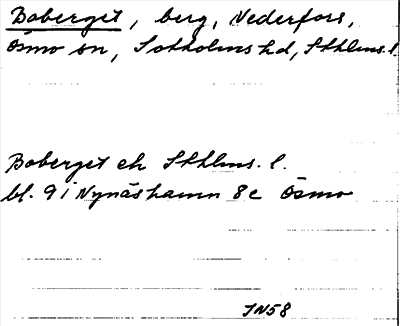 Boberget, berg, Vederfors,
Ösmo sn, Sotholms hd, Sthlms. l.
Boberget ek Sthlms. l.
bl. 9i Nynäshamn 8c Ösmo
IN58